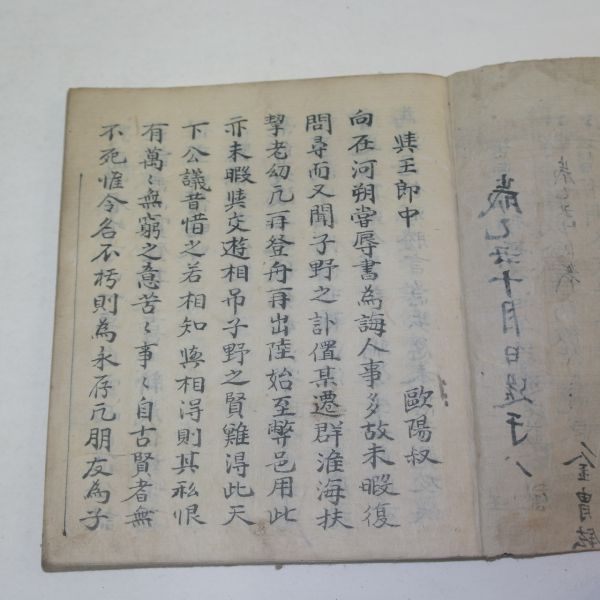 歲乙亥十月日
與王郎中 歐陽叔
向在河朔嘗辱書為誨人事多故未暇復
問尋而又聞子野之訃某遷群淮海扶
挈老幼凡再登舟再出陸始至弊邑用此
亦未暇與交遊相吊子野之賢難得此天
下公議昔惜之若相知與相得則其私恨
有萬〻無窮之意苦〻事〻自古賢者無
不死惟令名不朽則為永存凡朋友為子